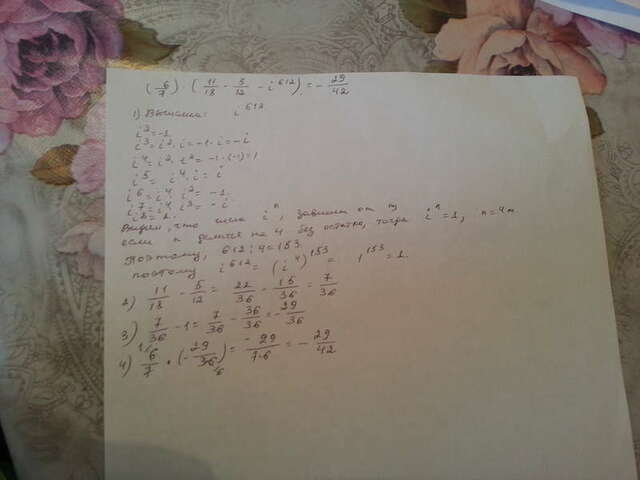 (6/7) · (11/18 - 5/12 - i^612) = - 29/42
1) i^612
i^2 = -1
i^3 = i^2 · i = -1 · i = -i
i^4 = i^2 · i^2 = -1 · (-1) = 1
i^5 = i^4 · i = i
i^6 = i^4 · i^2 = -1
i^7 = i^4 · i^3 = -i
i^8 = 1.
Видим, что числа i^n, зависит от n,
если n делится на 4 без остатка, тогда i^n = 1, n = 4m
Поэтому, 612 : 4 = 153
поэтому i^612 = (i^4)^153 = 1^153 = 1.
2) 11/18 - 5/12 = 22/36 - 15/36 = 7/36
3) 7/36 - 1 = 7/36 - 36/36 = - 29/36
4) 6/7 · (- 29/36) = - 29/7·6 = - 29/42